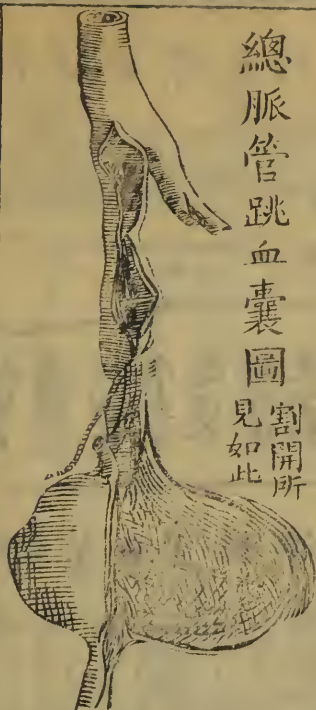 總脈管跳血囊圖
割開所
見如此